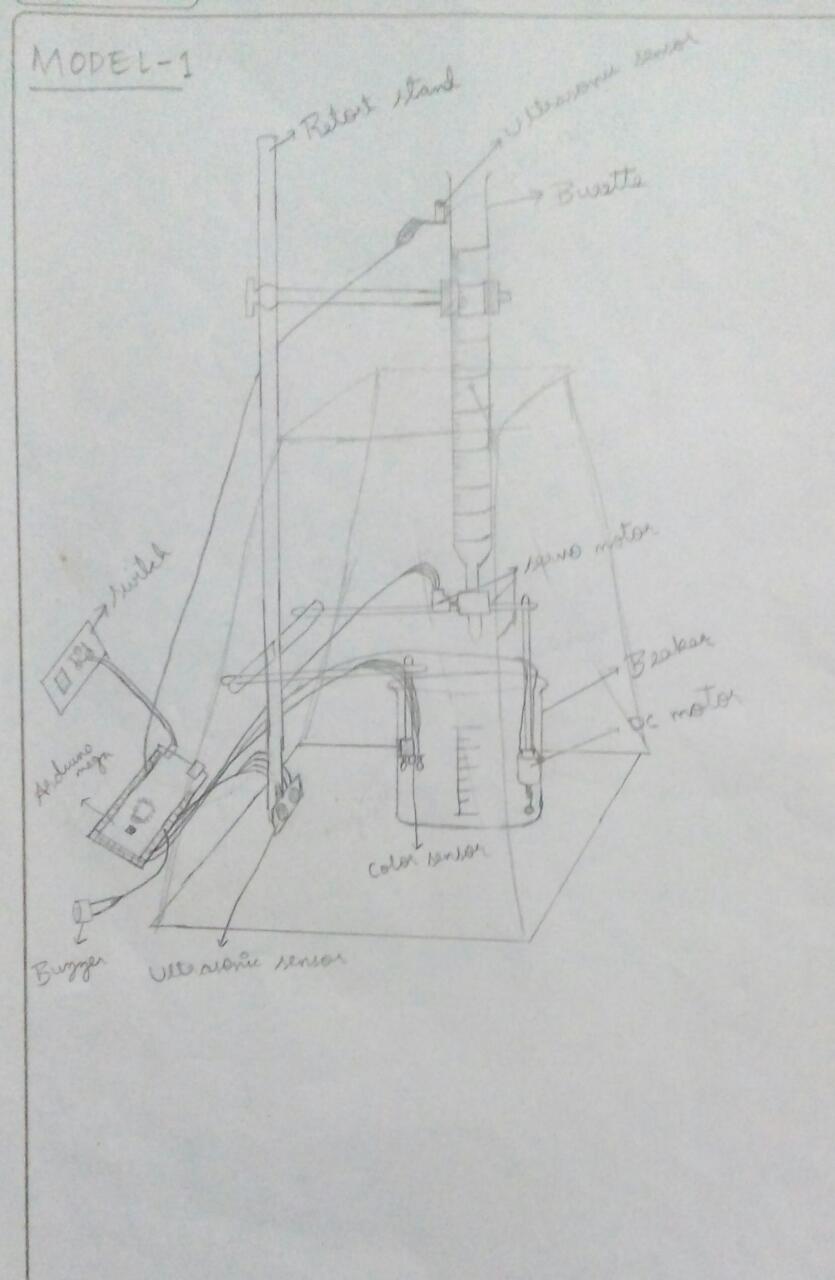 MODEL-1
Retort stand
Ultrasonic sensor
Burette
servo motor
switch
Beaker
DC motor
Arduino
mega
color sensor
Buzzer
Ultrasonic sensor